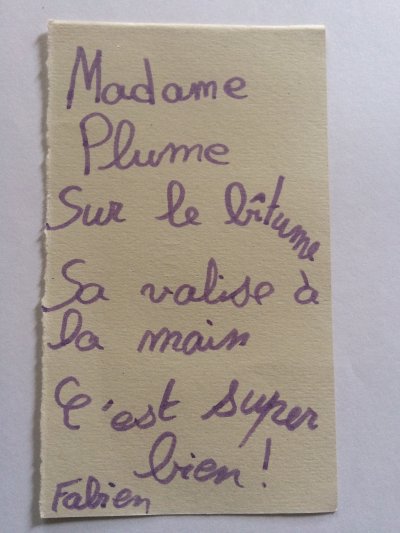 Madame
Plume
Sur le bîtume
Sa valise à
la main
C'est super
bien !
Fabien